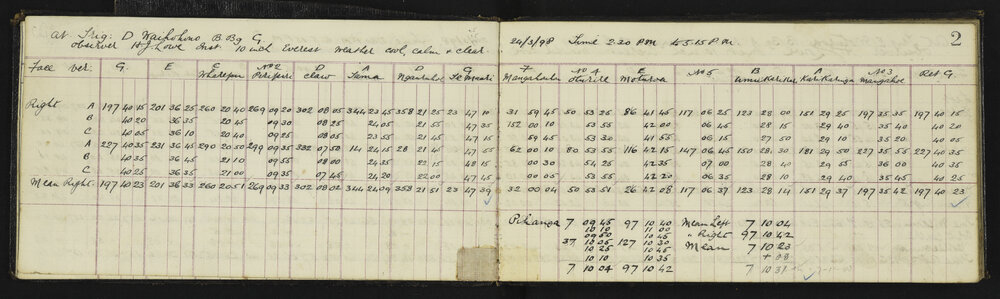 at Trig: D Waikohino B.Bg G.
observer H.J. Lowe Inst. 10 inch Everest weather cool, calm & clear
24/3/98 Time 2.30 P.M. to 5.15 P.M. 2
G. E E No 2 D A D G F No 4 E No 5 B A No 3 Ret G.
Face ver. Wharepu Peripuri claw Tuma
Right A 197 40 15 201 36 25 260 20 40 269 09 20 302 08 05 344 23 45 358 21 25 23 47 10 31 59 45 50 53 25 86 41 45 117 06 25 123 28 00 151 29 25 197 35 35 197 40 15
B 40 20 36 35 20 45 09 30 08 25 24 05 21 55 47 35 152 00 10 53 55 42 00 06 45 28 15 29 40 35 40 40 20
C 40 05 36 10 20 40 09 25 08 05 23 55 21 45 47 15 59 45 53 30 41 55 06 15 27 50 29 10 40 05
A 227 40 35 231 36 45 290 20 55 299 09 35 332 07 50 14 24 15 28 21 45 47 55 62 00 10 80 53 55 116 42 15 147 06 45 150 28 30 181 29 50 227 35 55 227 40 35
B 40 25 36 45 21 10 09 55 08 00 24 35 22 15 48 15 00 30 54 25 42 35 07 00 28 40 29 55 36 00 40 35
C 40 25 36 35 21 00 09 35 07 45 24 20 22 00 47 45 00 05 53 55 42 20 06 35 28 10 29 40 35 45 40 25
Mean Right 197 40 23 201 36 33 260 20 51 269 09 33 302 08 02 344 24 09 358 21 51 23 47 39 32 00 04 50 53 51 26 42 08 117 06 37 123 28 14 151 29 37 197 35 42 197 40 23
Pihanga 7 09 45 97 10 40 Mean Left 7 10 04
10 10 11 00 " Right 97 10 42
09 50 10 45
37 10 05 127 10 30 Mean 7 10 23
10 25 10 45 + 08
10 10 10 35
7 10 04 97 10 42 7 10 31